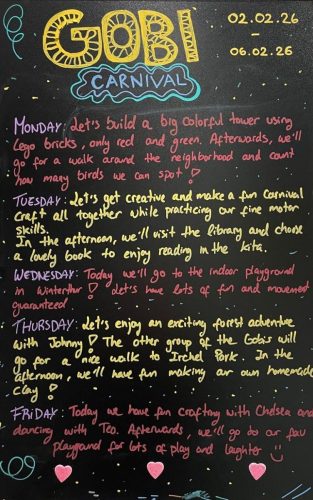 GOBI
02.02.26
-
06.02.26
CARNIVAL
MONDAY: Let's build a big colorful tower using
Lego bricks, only red and green. Afterwards, we'll
go for a walk around the neighborhood and count
how many birds we can spot!
TUESDAY: Let's get creative and make a fun Carnival
craft all together while practicing our fine motor
skills.
In the afternoon, we'll visit the library and choose
a lovely book to enjoy reading in the kita.
WEDNESDAY: Today we'll go to the indoor playground
in Winterthur! Let's have lots of fun and movement
guaranteed
THURSDAY: Let's enjoy an exciting forest adventure
with Johnny! The other group of the Gobis will
go for a nice walk to Irchel Park. In the
afternoon, we'll have fun making our own homemade
clay!
FRIDAY: Today we have fun crafting with Chelsea and
dancing with Teo. Afterwards, we'll go to our fav
playground for lots of play and laughter